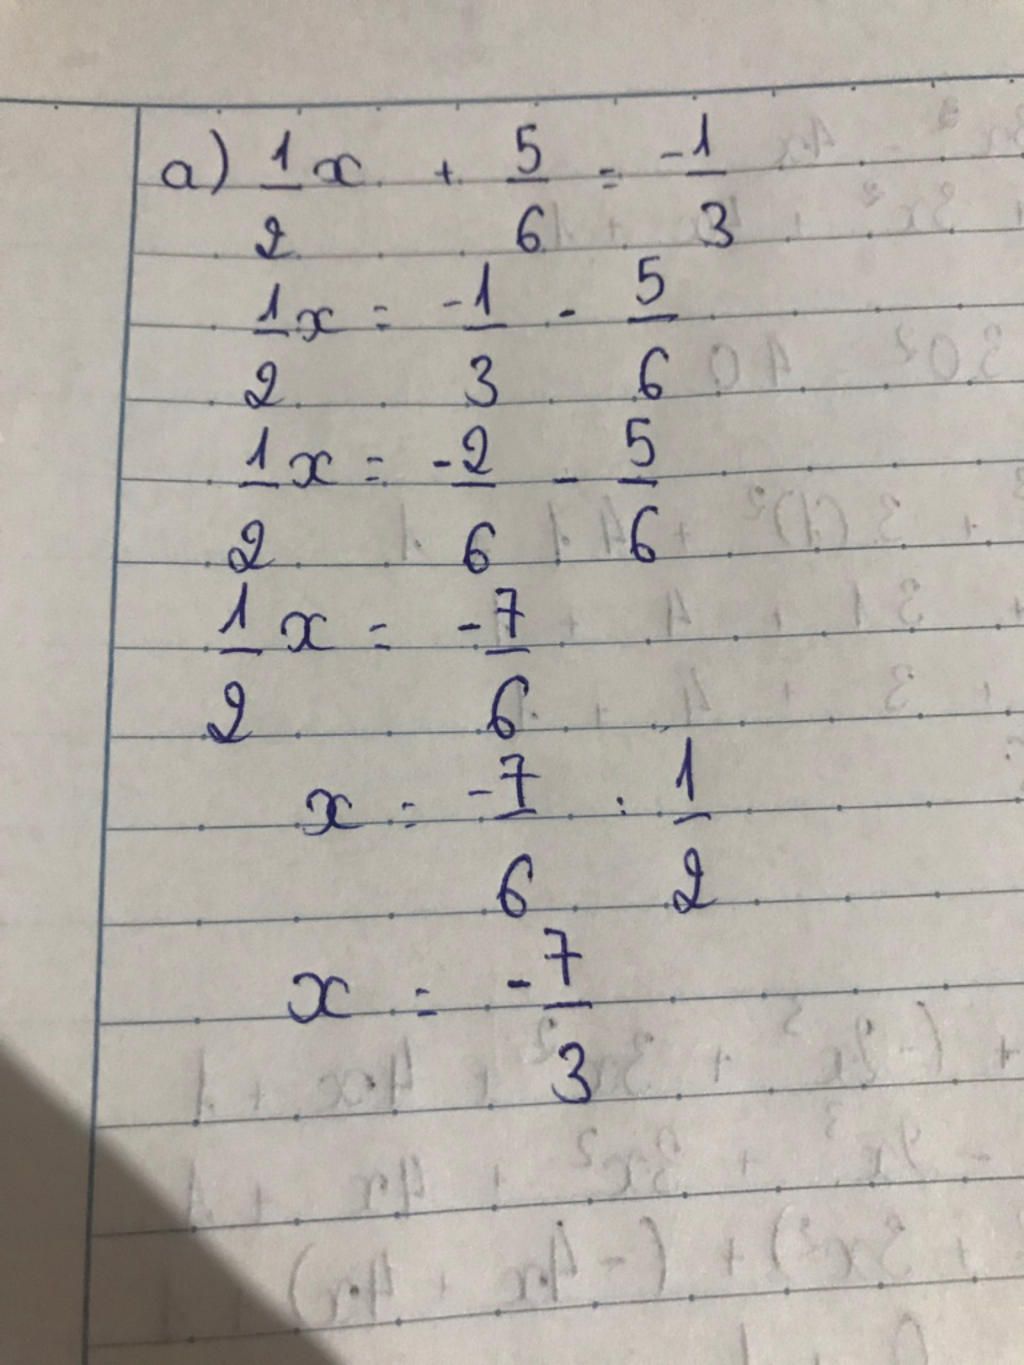 a) 1/2 x + 5/6 = -1/3
1/2 x = -1/3 - 5/6
1/2 x = -2/6 - 5/6
1/2 x = -7/6
x = -7/6 : 1/2
x = -7/3